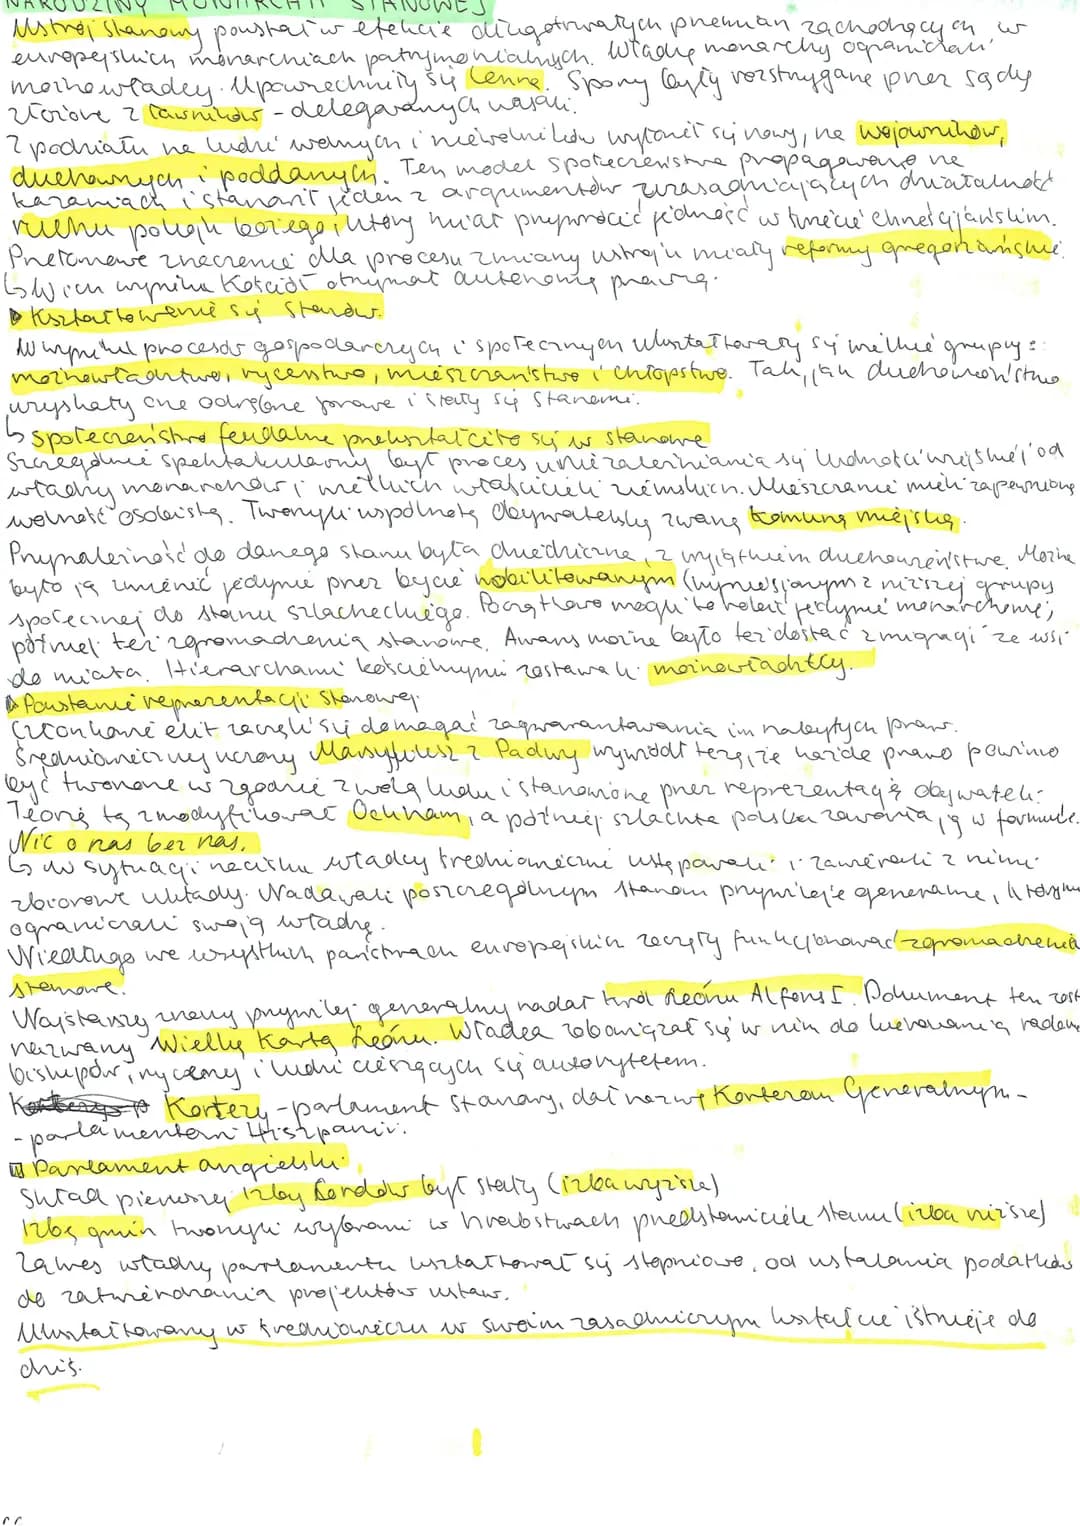 NARODZINY MONARCHII STANOWEJ
Ustrój stanowy powstał w efekcie długotrwałych przemian zachodzących w
europejskich monarchiach patrymonialnych. Władzę monarchy ograniczali
możnowładcy. Upowszechniły się lenna. Spory były rozstrzygane przez sądy
złożone z ławników - delegowanych wasali.
Z podziału na ludzi wolnych i niewolników wyłonił się nowy, na wojowników,
duchownych i poddanych. Ten model społeczeństwa propagowano na
kazaniach i stanowił jeden z argumentów uzasadniających działalność
ruchu pokoju bożego, który miał przywrócić jedność w świecie chrześcijańskim.
Przełomowe znaczenie dla procesu zmiany ustroju miały reformy gregoriańskie.
↳ W ich wyniku Kościół otrzymał autonomię prawną.
▶ Kształtowanie się stanów.
W wyniku procesów gospodarczych i społecznych ukształtowały się wielkie grupy:
możnowładztwo, rycerstwo, mieszczaństwo i chłopstwo. Tak, jak duchowieństwo
uzyskały one odrębne prawa i stały się stanami.
↳ Społeczeństwo feudalne przekształciło się w stanowe
Szczególnie spektakularny był proces uniezależniania się ludności wiejskiej od
władzy monarchów i wielkich właścicieli ziemskich. Mieszczanie mieli zapewnioną
wolność osobistą. Tworzyli wspólnotę obywatelską zwaną komuną miejską.
Przynależność do danego stanu była dziedziczna, z wyjątkiem duchowieństwa. Można
było ją zmienić jedynie przez bycie nobilitowanym (wyniesionym z niższej grupy
społecznej do stanu szlacheckiego. Początkowo mogli to robić jedynie monarchowie,
później też zgromadzenia stanowe. Awans można było też dostać z migracji ze wsi
do miasta. Hierarchami kościelnymi zostawali możnowładcy.
▶ Powstanie reprezentacji stanowej
Członkowie elit zaczęli się domagać zagwarantowania im nabytych praw.
Średniowieczny uczony Marsyliusz z Padwy wywiódł tezę, że każde prawo powinno
być tworzone w zgodzie z wolą ludu i stanowione przez reprezentację obywateli.
Teorię tą zmodyfikował Ockham, a później szlachta polska zawarła ją w formule.
Nic o nas bez nas.
↳ W sytuacji nacisku władcy średniowieczni ustępowali i zawierali z nimi
zbiorowe układy. Nadawali poszczególnym stanom przywileje generalne, którymi
ograniczali swoją władzę.
Niedługo we wszystkich państwach europejskich zaczęły funkcjonować zgromadzenia
stanowe.
Najstarszy znany przywilej generalny nadał król Leónu Alfons I. Dokument ten został
nazwany Wielką Kartą Leónu. Władca zobowiązał się w nim do kierowania radami
biskupów, rycerzy i ludzi cieszących się autorytetem.
Kortezy - parlament stanowy, dał nazwę Kortezom Generalnym -
- parlamentem Hiszpanii.
Parlament angielski
Skład pierwszej Izby Lordów był stały (izba wyższa)
Izbę gmin tworzyli wybrani w hrabstwach przedstawiciele stanu (izba niższa)
Zakres władzy parlamentu kształtował się stopniowo, od ustalania podatków
do zatwierdzania projektów ustaw.
Ukształtowany w średniowieczu w swoim zasadniczym kształcie istnieje do
dziś.